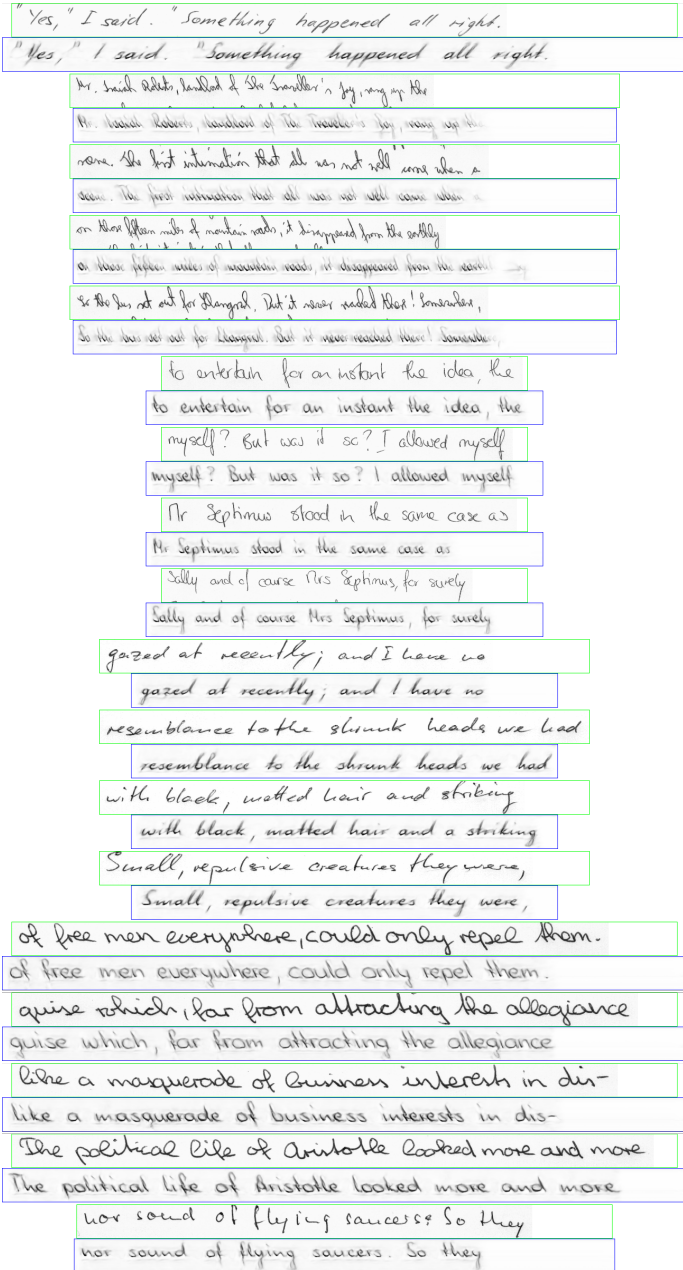 "Yes," I said. "Something happened all right.
"Yes," I said. "Something happened all right.
Mr. Isaiah Roberts, landlord of The Traveller's Joy, rang up the
Mr. Isaiah Roberts, landlord of The Traveller's Joy, rang up the
scene. The first intimation that all was not well came when a
scene. The first intimation that all was not well came when a
on those fifteen miles of mountain roads, it disappeared from the earthly
on those fifteen miles of mountain roads, it disappeared from the
So the bus set out for Llangrol. But it never reached there! Somewhere,
So the bus set out for Llangrol. But it never reached there! Somewhere,
to entertain for an instant the idea, the
to entertain for an instant the idea, the
myself? But was it so? I allowed myself
myself? But was it so? I allowed myself
Mr Septimus stood in the same case as
Mr Septimus stood in the same case as
Sally and of course Mrs Septimus, for surely
Sally and of course Mrs Septimus, for surely
gazed at recently; and I have no
gazed at recently; and I have no
resemblance to the shrunk heads we had
resemblance to the shrunk heads we had
with black, matted hair and striking
with black, matted hair and a striking
Small, repulsive creatures they were,
Small, repulsive creatures they were,
of free men everywhere, could only repel them.
of free men everywhere, could only repel them.
guise which, far from attracting the allegiance
guise which, far from attracting the allegiance
like a masquerade of business interests in dis-
like a masquerade of business interests in dis-
The political life of Aristotle looked more and more
The political life of Aristotle looked more and more
nor sound of flying saucers. So they
nor sound of flying saucers. So they